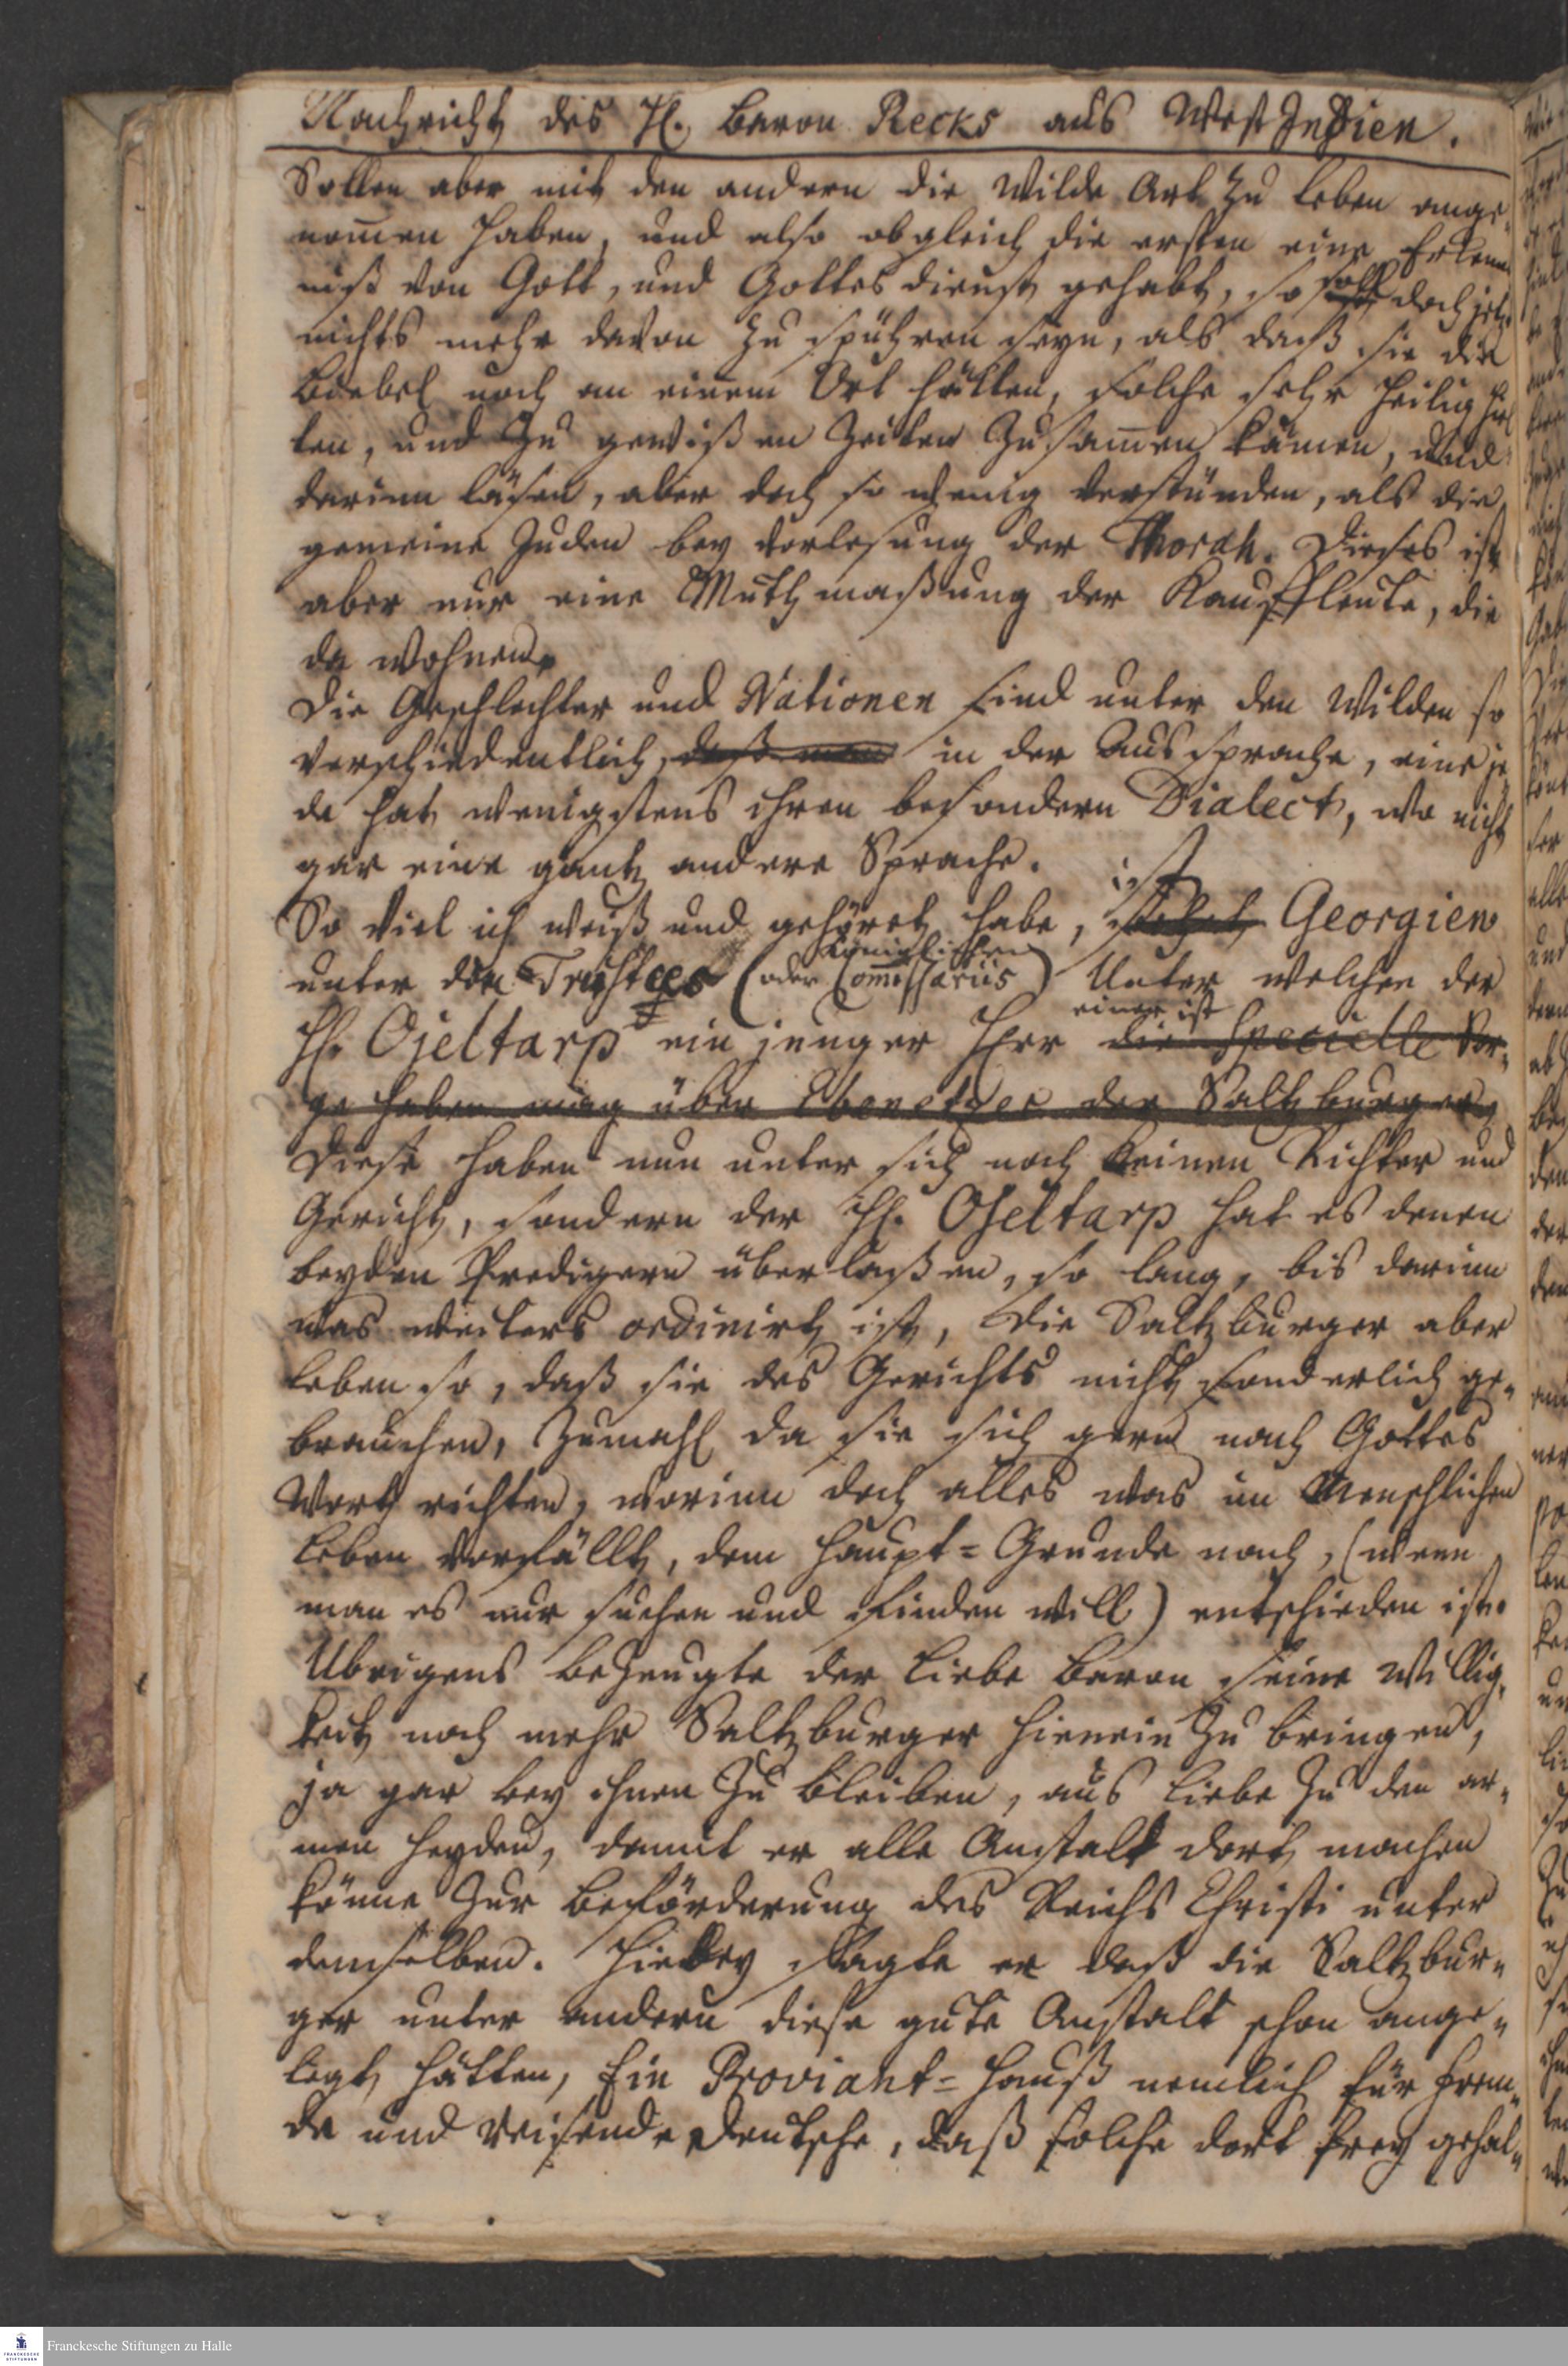 Nachricht des H. Baron Recks aus West Indien.
Sollen aber mit den andern die Wilde Art zu leben ange-
nomen haben, und also obgleich die ersten eine Erkent
niß von Gott, und Gottes dienst gehabt, so soll doch jetz
nichts mehr davon zu spühren seyn, als daß sie die
Biebel noch an einem Ort hätten, solche sehr heilig hiel
ten, und zu gewißen Zeiten zusamen kämen, und
darinn läsen, aber doch so wenig verstünden, als die
gemeine Juden bey vorlesung der Thorah. Dieses ist
aber nur eine Muthmaßung der Kauffleute, die
da wohnen.
Die Geschlechter und Nationen sind unter den Wilden so
verschiedentlich, daß man in der Aussprache, eine je
de hat wenigstens ihren besondern Dialect, wo nicht
gar eine gantz andere Sprache.
ist
So viel ich weiß und gehöret habe, stehet Georgien
Königlichen
unter den Trustees (oder Comissariis) Unter welchen der
einer ist
H. Ojeltarp ein junger Herr die Specielle Sor-
ge haben mag über Ebenetzer der Saltzburger,
Diese haben nun unter sich noch keinen Richter und
Gericht, sondern der H. Ojeltarp hat es denen
beyden Predigern überlaßen, so lang, bis darinn
was weiters ordinirt ist, Die Saltzburger aber
leben so, daß sie des Gerichts nicht sonderlich ge-
brauchen, zumahl da sie sich gern nach Gottes
Wort richten, worinn doch alles was im Menschlichen
Leben vorfällt, dem Haupt-Grunde nach, (wenn
man es nur suchen und finden will) entschieden ist.
Ubrigens bezeugte der liebe Baron seine Willig-
keit noch mehr Saltzburger hinein zu bringen,
ja gar bey ihnen zu bleiben, aus Liebe zu den ar-
men Heyden, damit er alle Anstalt dort machen
könne zur Beförderung des Reichs Christi unter
demselben. Hiebey sagte er daß die Saltzbur-
ger unter andern diese gute Anstalt schon ange-
legt hätten, Ein Proviant-Hauß nemlich für Frem-
de und reisende Deutsche, daß solche dort frey gehal-
Franckesche Stiftungen zu Halle